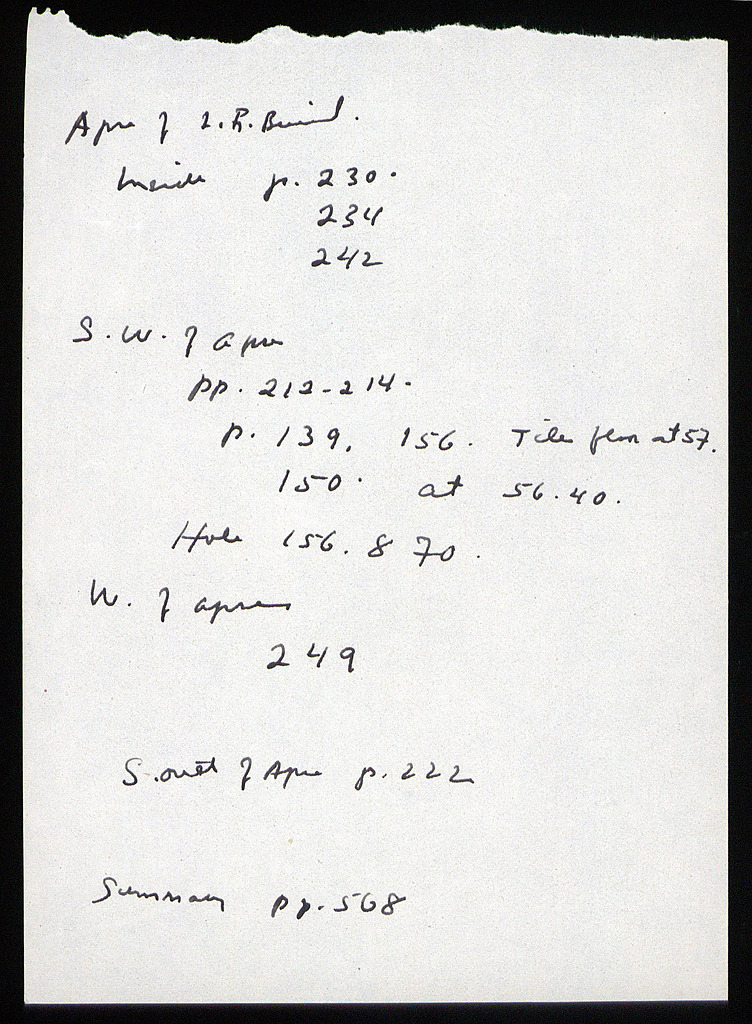 Apse of L.R. Build.
Inside p. 230.
234
242
S.W. of apse
pp. 212-214.
p. 139, 156. Tile floor at 57.
150. at 56.40.
Hole 156.870.
W. of apse
249
S. of Apse p. 222
Summary pp. 568